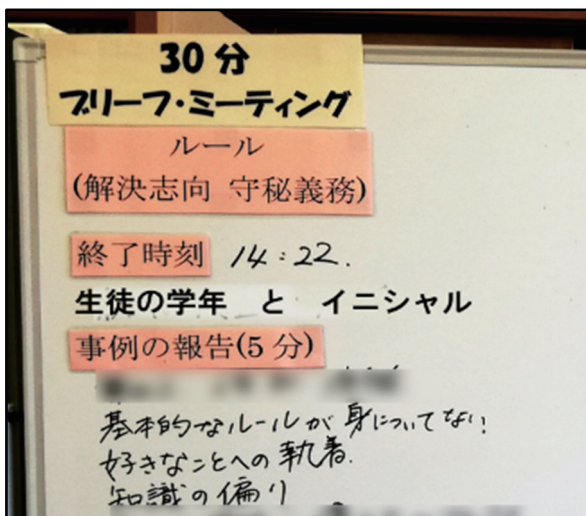 30分
ブリーフ・ミーティング
ルール
(解決志向 守秘義務)
終了時刻 14:22.
生徒の学年 と イニシャル
事例の報告(5分)
基本的なルールが身についてない
好きなことへの執着.
知識の偏り